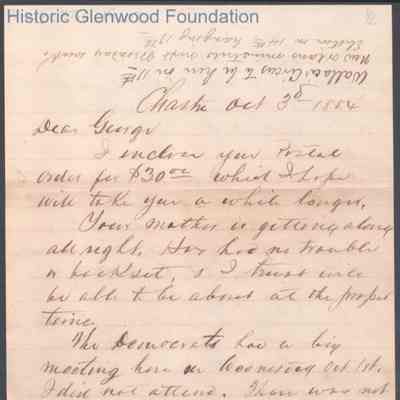 Historic Glenwood Foundation
Wallace Circus to be here on 11th
New Orleans minstrels next Thursday week
Election on 14th hanging 17th
Chaska Oct 3d 1884
Dear George
I inclose you Postal
order for $30.00 which I hope
will take you a while longer.
Your mother is getting along
all right. Has had no trouble
or backset, & I trust will
be able to be about at the proper
time.
The Democrats had a big
meeting here on Wednesday Oct 1st.
I did not attend. There was not